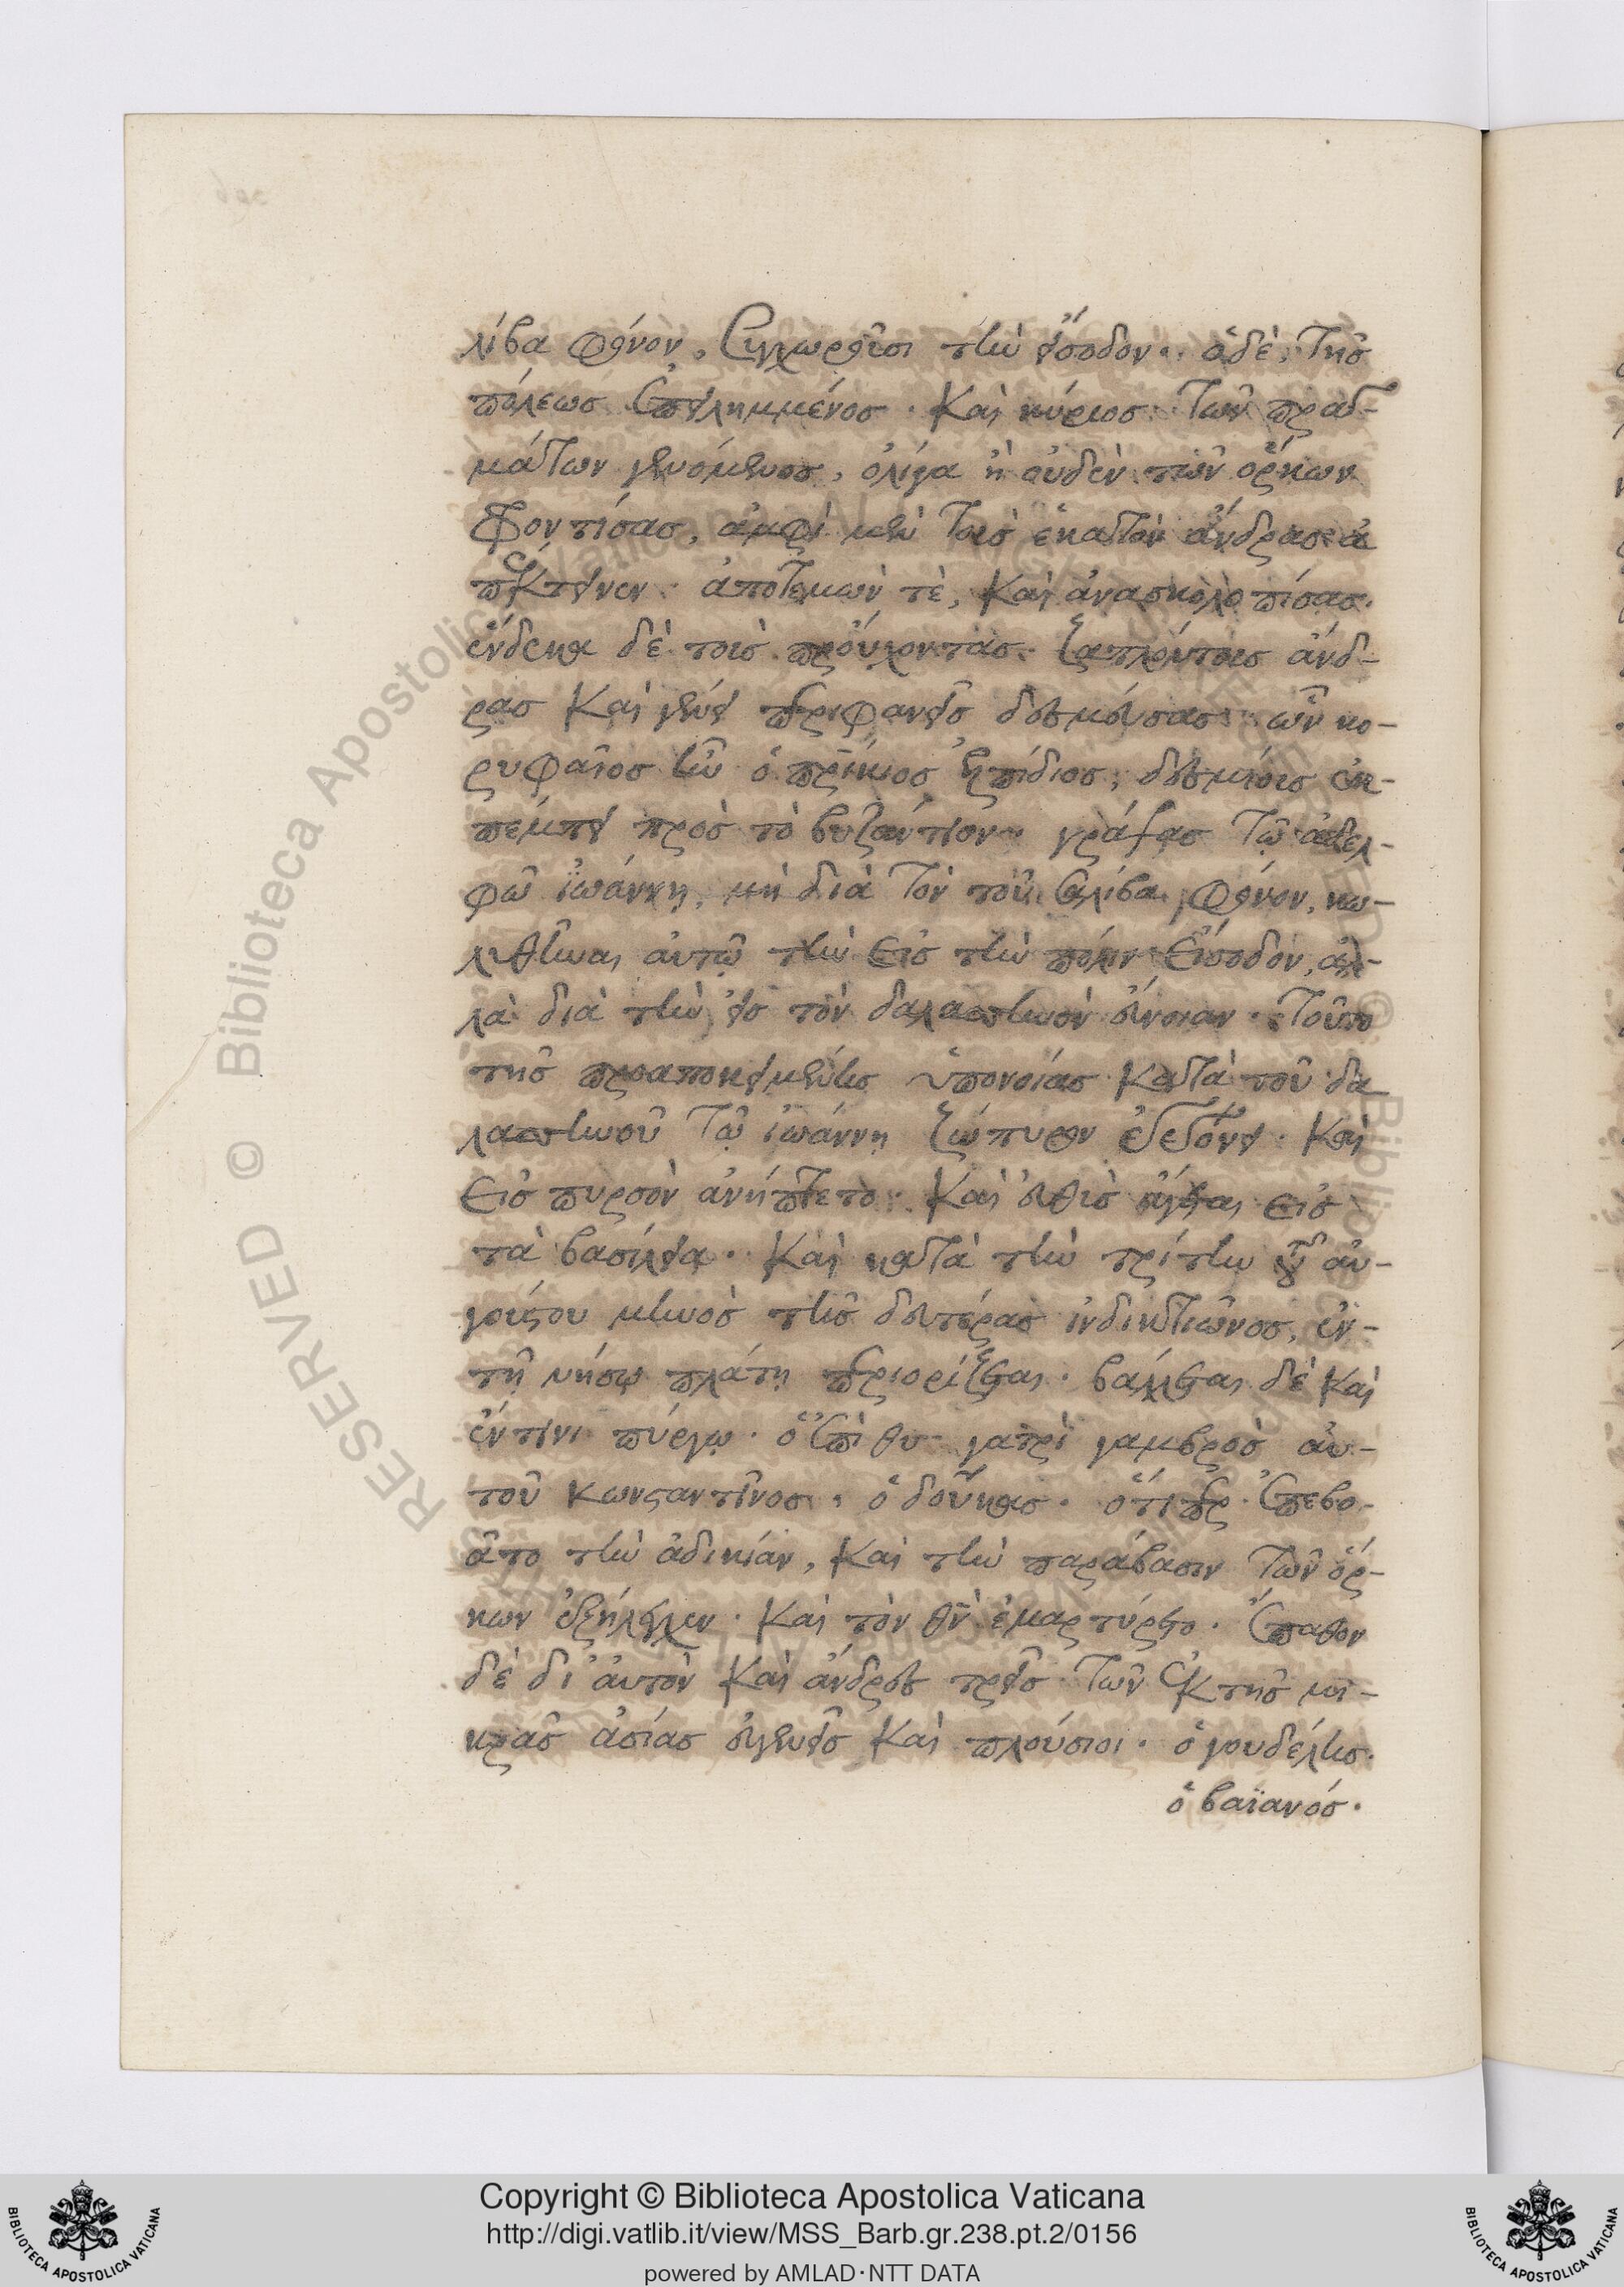 λίβα φόνον, συγχωρεῖσι τὴν εἴσοδον. ὁ δὲ, τῆς
πόλεως ἐπειλημμένος. καὶ κύριος τῶν πραγ-
μάτων γενόμενος, ὀλίγα ἢ οὐδὲν τῶν ὅρκων
φροντίσας, ἀμφὶ μὲν τοὺς ἑκατὸν ἄνδρας ἀ
πέκτεινεν. ἀποτεμὼν τὲ, καὶ ἀνασκολοπίσας.
ἕνδεκα δὲ τοὺς προύχοντας. ἄνδ-
ρας καὶ γένει περιφανεῖς δεσμεύσας. ὧν κο-
ρυφαῖος ἦν ὁ πρίκιος ἐλπίδιος, δεσμίους ἐκ-
πέμπει πρὸς τὸ βυζάντιον. γράψας τῷ ἀδελ-
φῶ ἰωάννη, μὴ διὰ τὸν τοῦ σαλίβα φόνον, κω-
λυθῆναι αὐτῷ τὴν εἰς τὴν πόλιν εἴσοδον, ἀλ-
λὰ διὰ τὴν εἰς τὸν δαλασσηνὸν εὔνοιαν. τοῦτο
τῆς προαποκειμένης ὑπονοίας κατὰ τοῦ δα
λασσηνοῦ τῷ ἰωάννη ζώπυρον ἐγεγόνει. καὶ
εἰς πυρσὸν ἀνήπτετο. καὶ εὐθὺς ἄγεται εἰς
τὰ βασίλεια. καὶ κατὰ τὴν τρίτην τοῦ αὐ-
γούστου μηνὸς τῆς δευτέρας ἰνδικτιῶνος, ἐν-
τῆ νήσῳ πλάτη περιορίζεται. βάλλεται δὲ καὶ
ἔν τινι πύργῳ. ὁ ἐπὶ θυ- γατρὶ γαμβρὸς αὐ-
τοῦ κωνσταντῖνος. ὁ δούκας. ὅτι περ ἐπεβο-
ᾶτο τὴν ἀδικίαν, καὶ τὴν παράβασιν τῶν ὅρ-
κων ἐξήλεγχεν. καὶ τὸν θν̅ ἐμαρτύρετο. ἔπαθον
δὲ δι' αὐτὸν καὶ ἄνδρες τρεῖς τῶν ἐκ τῆς μι-
κρᾶς ἀσίας εὐγενεῖς καὶ πλούσιοι. ὁ γουδέλης.
ὁ βαϊανός.
Copyright © Biblioteca Apostolica Vaticana
http://digi.vatlib.it/view/MSS_Barb.gr.238.pt.2/0156
powered by AMLAD·NTT DATA